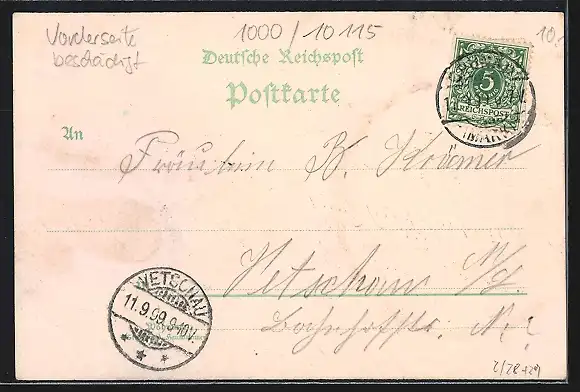 Vorderseite
beschädigt
1000 / 10 115
10.-
Deutsche Reichspost
Postkarte
5
REICHSPOST
(MARK)
An
Fräulein B. Krämer
Vetschau N/L.
Bahnhofstr. N.
VETSCHAU
11.9.99.9-10V.